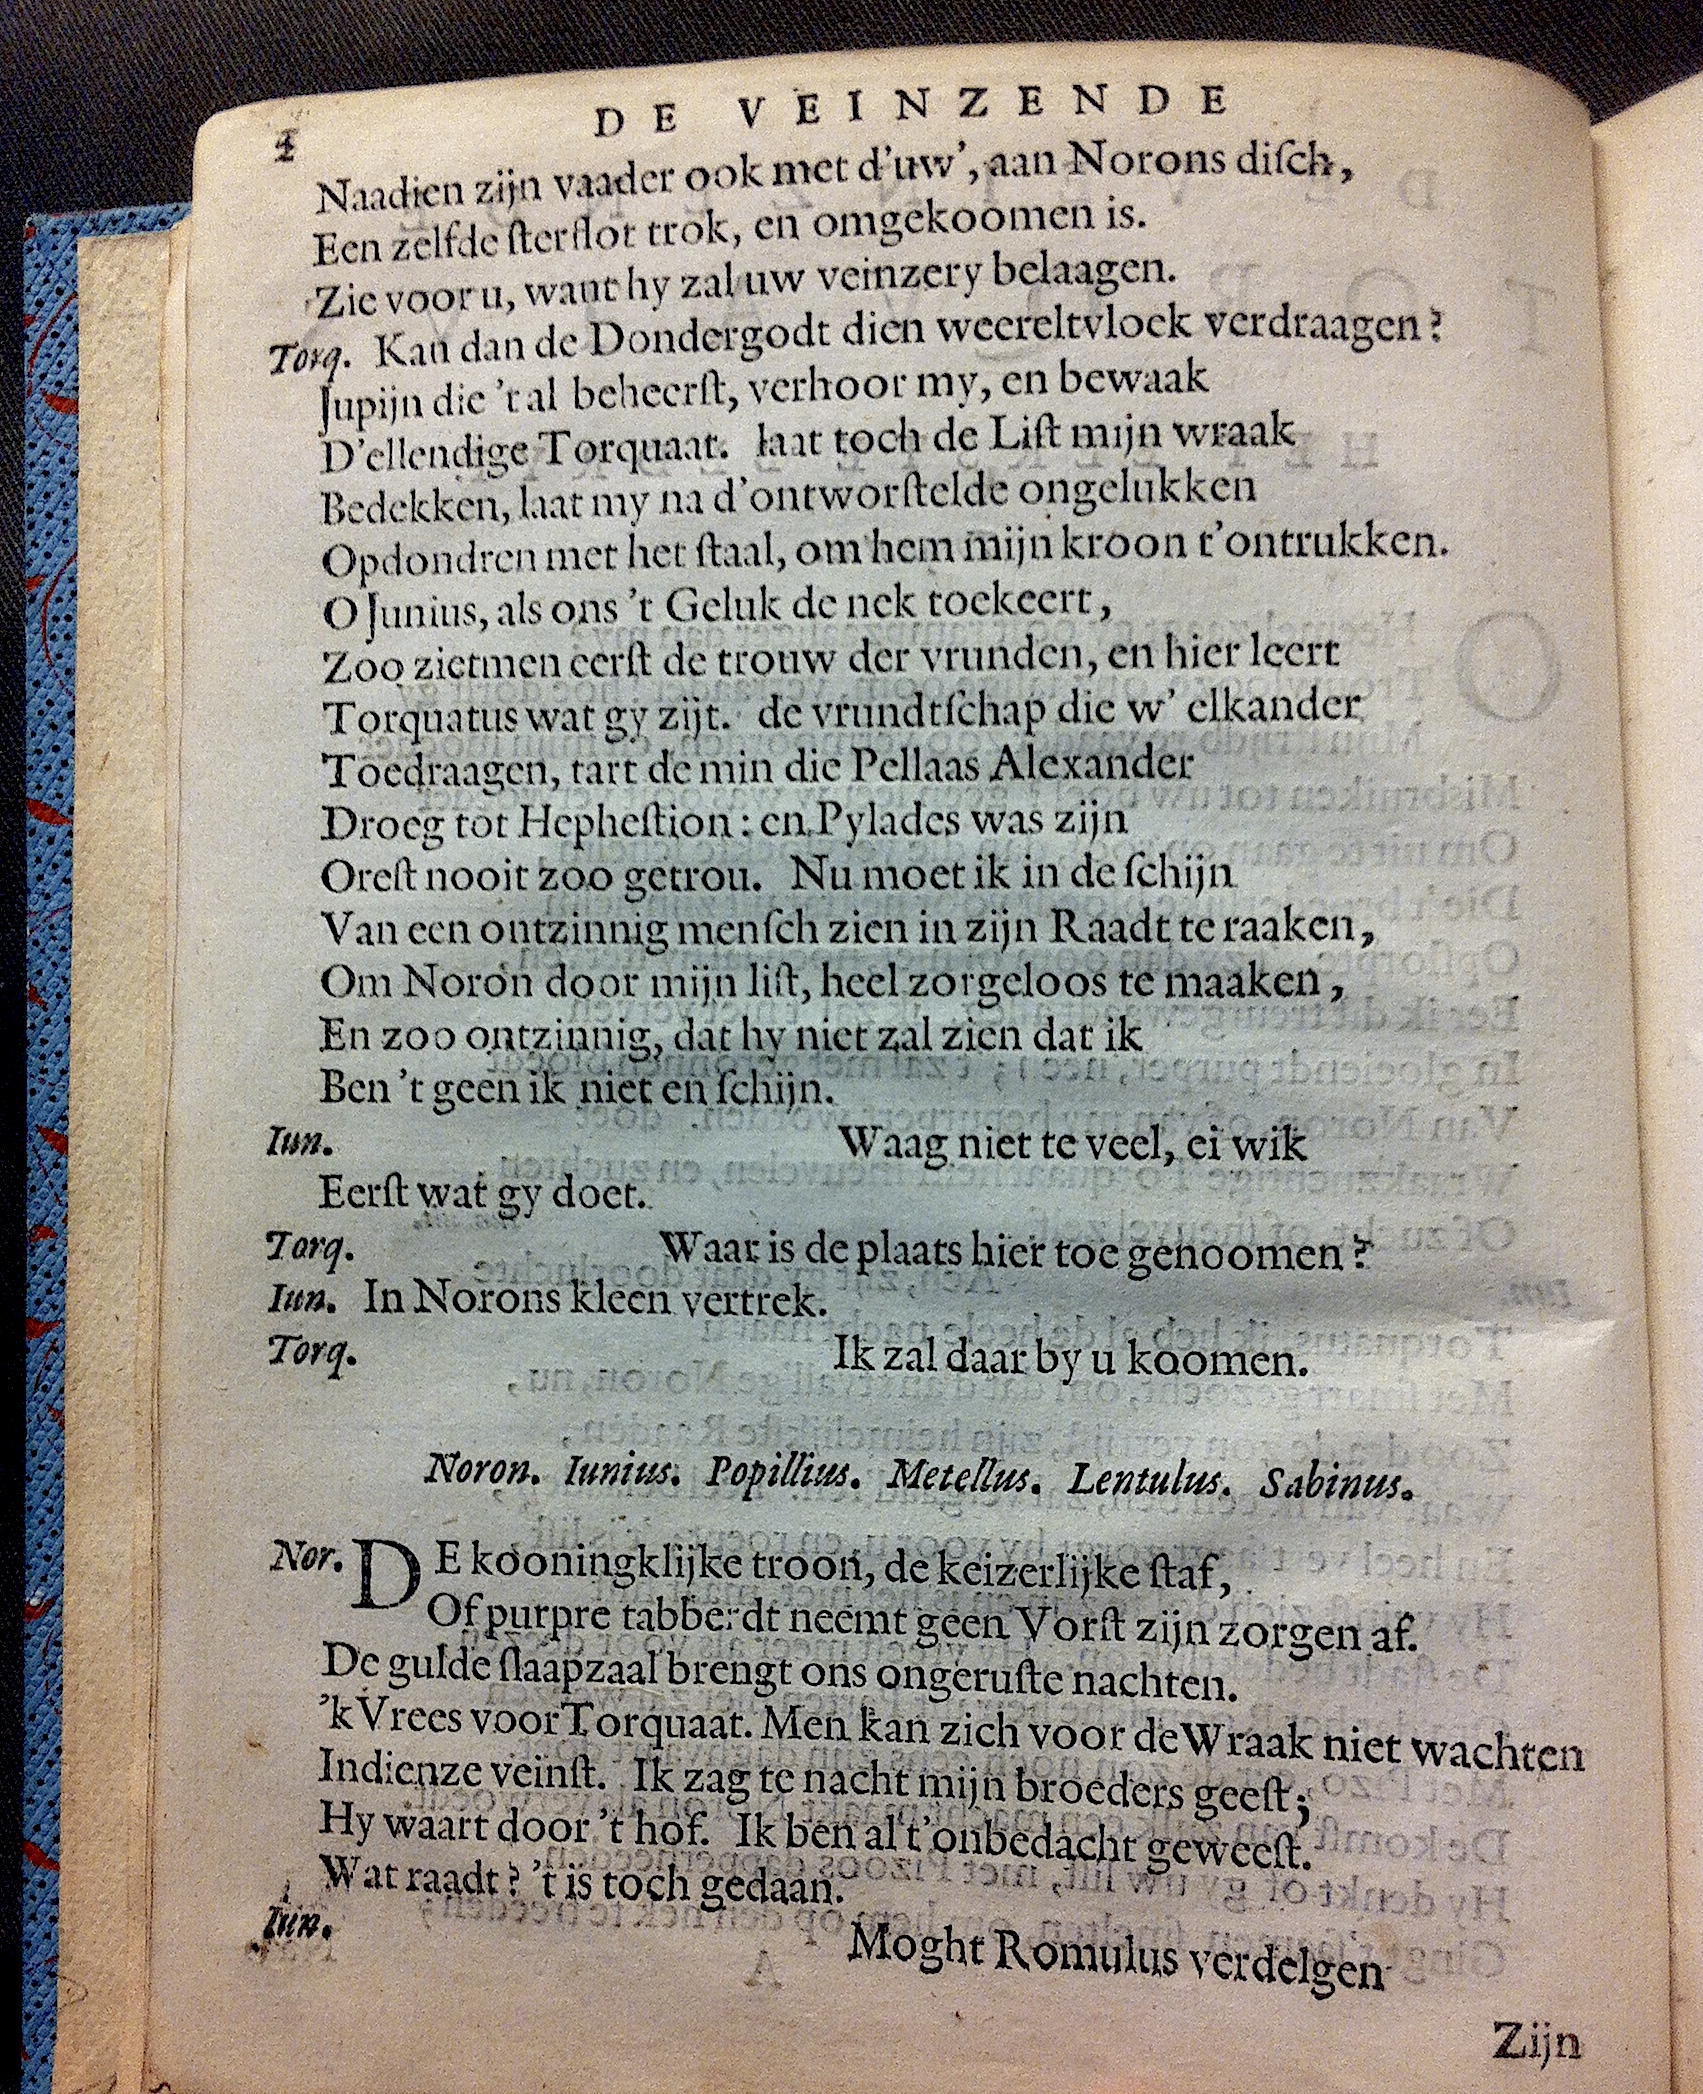 4
DE VEINZENDE
Naadien zijn vaader ook met d'uw', aan Norons diſch,
Een zelfde ſterflot trok, en omgekoomen is.
Zie voor u, want hy zal uw veinzery belaagen.
Torq. Kan dan de Dondergodt dien weereltvloek verdraagen?
Jupijn die 't al beheerſt, verhoor my, en bewaak
D'ellendige Torquaat. laat toch de Liſt mijn wraak
Bedekken, laat my na d'ontworſtelde ongelukken
Opdondren met het ſtaal, om hem mijn kroon t'ontrukken.
O Junius, als ons 't Geluk de nek toekeert,
Zoo zietmen eerſt de trouw der vrunden, en hier leert
Torquatus wat gy zijt. de vrundtſchap die w' elkander
Toedraagen, tart de min die Pellaas Alexander
Droeg tot Hepheſtion: en Pylades was zijn
Oreſt nooit zoo getrou. Nu moet ik in de ſchijn
Van een ontzinnig menſch zien in zijn Raadt te raaken,
Om Noron door mijn liſt, heel zorgeloos te maaken,
En zoo ontzinnig, dat hy niet zal zien dat ik
Ben 't geen ik niet en ſchijn.
Iun. Waag niet te veel, ei wik
Eerſt wat gy doet.
Torq. Waar is de plaats hier toe genoomen?
Iun. In Norons kleen vertrek.
Torq. Ik zal daar by u koomen.
Noron. Iunius. Popillius. Metellus. Lentulus. Sabinus.
Nor. DE kooningklijke troon, de keizerlijke ſtaf,
Of purpre tabberdt neemt geen Vorſt zijn zorgen af.
De gulde ſlaapzaal brengt ons ongeruſte nachten.
'k Vrees voor Torquaat. Men kan zich voor de Wraak niet wachten
Indienze veinſt. Ik zag te nacht mijn broeders geeſt;
Hy waart door 't hof. Ik ben al t'onbedacht geweeſt.
Wat raadt? 't is toch gedaan.
Iun. Moght Romulus verdelgen
Zijn